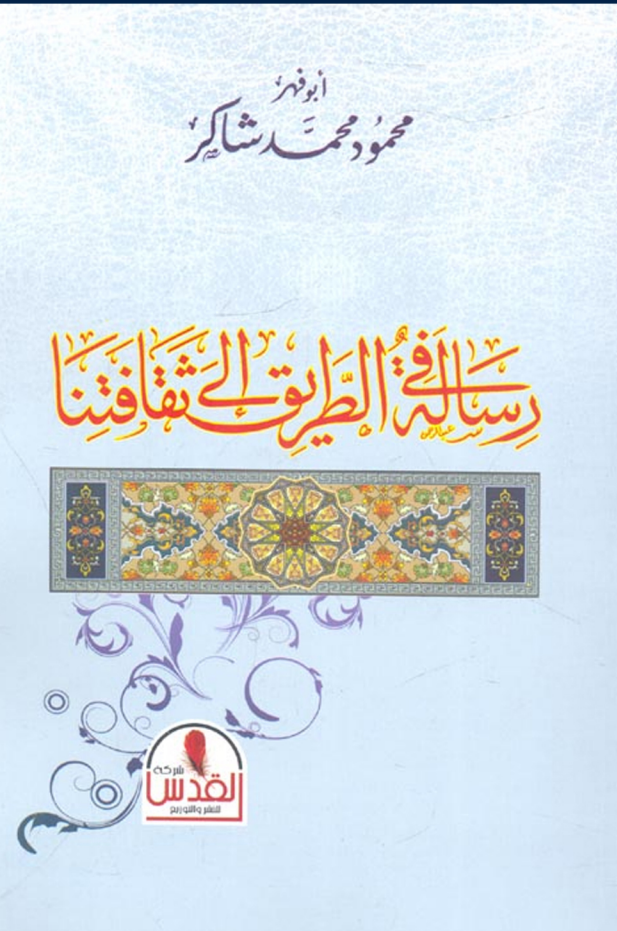 أبو فهر
محمود محمد شاكر
رسالة في الطريق إلى ثقافتنا
شركة
القدس
للنشر والتوزيع